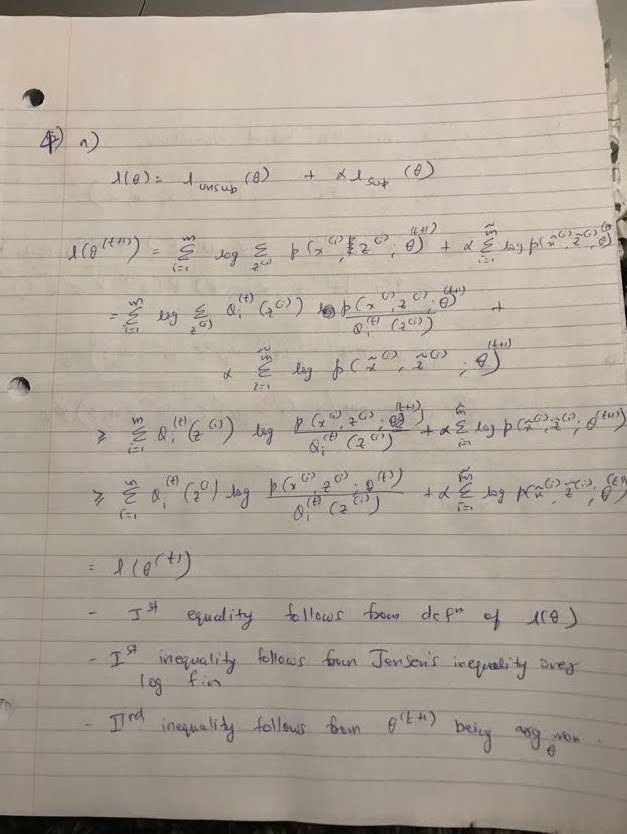 4) a)
l(θ) = l_unsup (θ) + α l_sup (θ)
l(θ^(t+1)) = Σ_{i=1}^{m} log Σ_{z^(i)} p(x^(i), z^(i); θ)^(t+1) + α Σ_{i=1}^{m̃} log p(x̃^(i), z̃^(i); θ)^(t+1)
= Σ_{i=1}^{m} log Σ_{z^(i)} Q_i^(t) (z^(i)) p(x^(i), z^(i); θ)^(t+1) / Q_i^(t) (z^(i)) +
α Σ_{i=1}^{m̃} log p(x̃^(i), z̃^(i); θ)^(t+1)
≥ Σ_{i=1}^{m} Q_i^(t) (z^(i)) log p(x^(i), z^(i); θ^(t+1)) / Q_i^(t) (z^(i)) + α Σ_{i=1}^{m̃} log p(x̃^(i), z̃^(i); θ^(t+1))
≥ Σ_{i=1}^{m} Q_i^(t) (z^(i)) log p(x^(i), z^(i); θ^(t)) / Q_i^(t) (z^(i)) + α Σ_{i=1}^{m̃} log p(x̃^(i), z̃^(i); θ^(t))
= l(θ^(t))
- Ist equality follows from defn of l(θ)
- Ist inequality follows from Jensen's inequality over
log
- IInd inequality follows from θ^(t+1) being arg max_θ